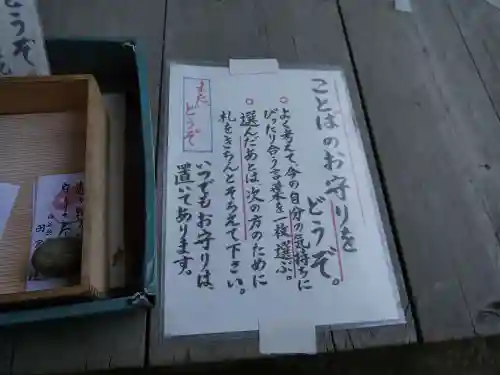 ことばのお守りを
どうぞ。
○よく考えて、今の自分の気持ちに
ぴったり合う言葉を一枚選ぶ。
○選んだあとは、次の方のために
札をきちんとそろえて下さい。
またどうぞ
いつでもお守りは、
置いてあります。
どうぞ